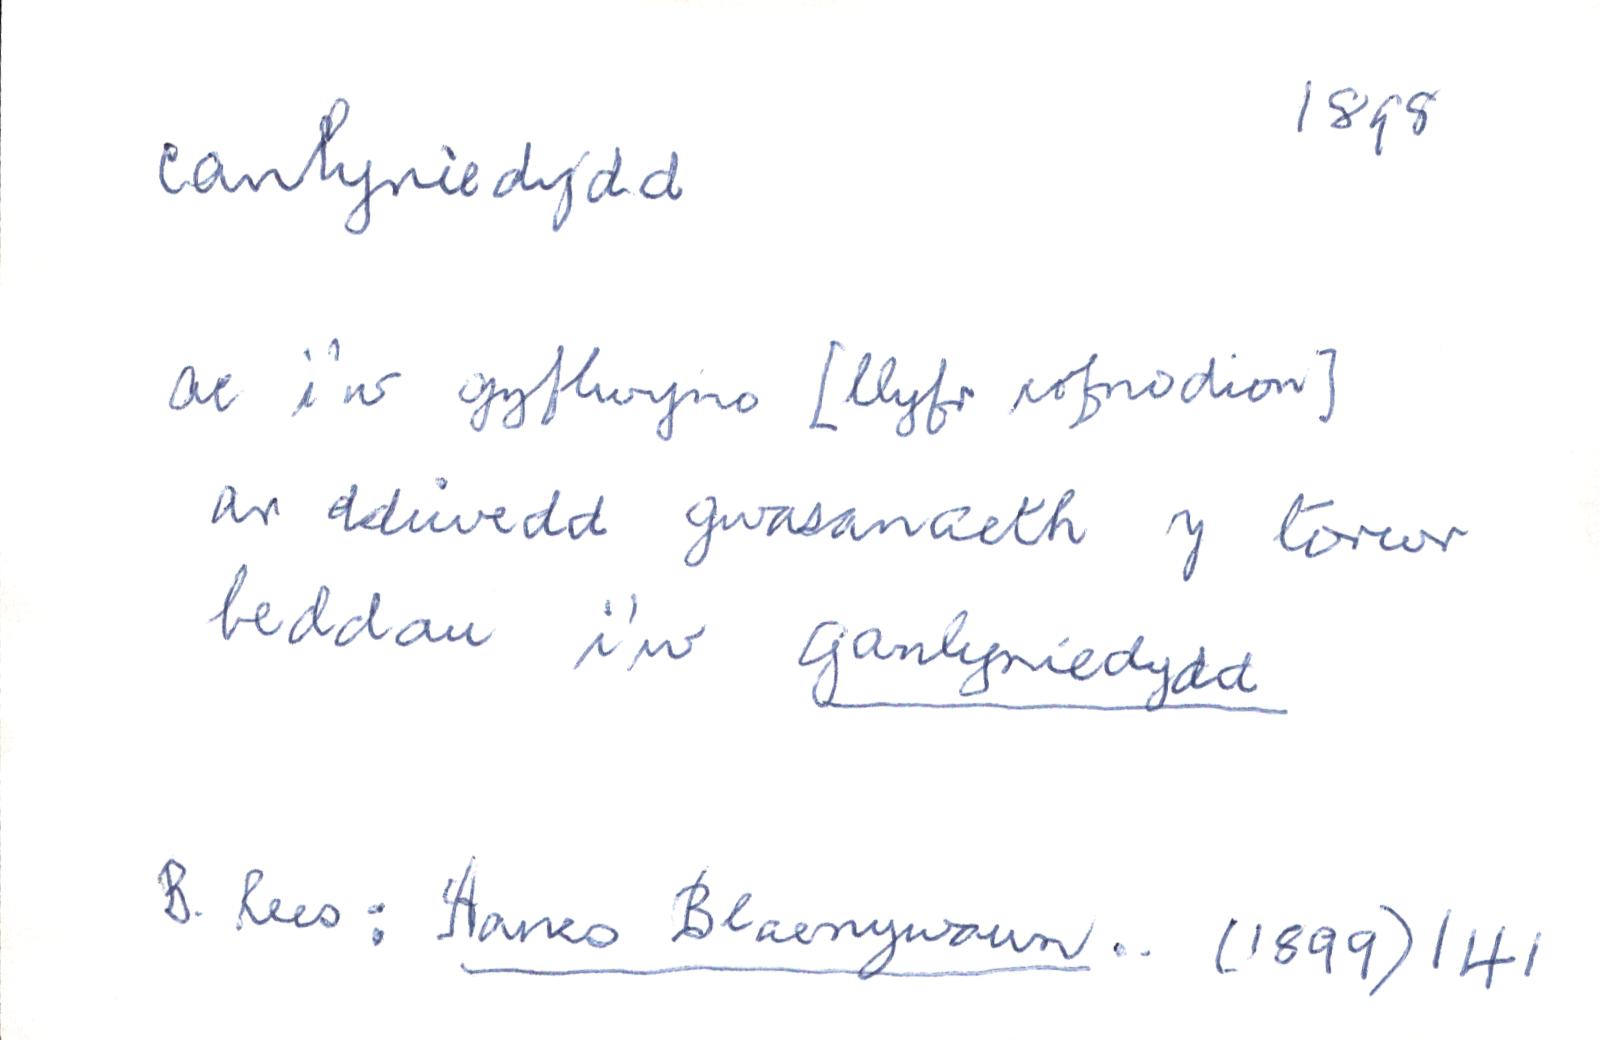 1898
canlyniedydd
ac i'w gyflwyno [llyfr cofnodion]
ar ddiwedd gwasanaeth y torwr
beddau i'w ganlyniedydd
B. Rees : Hanes Blaenywaun .. (1899) 141